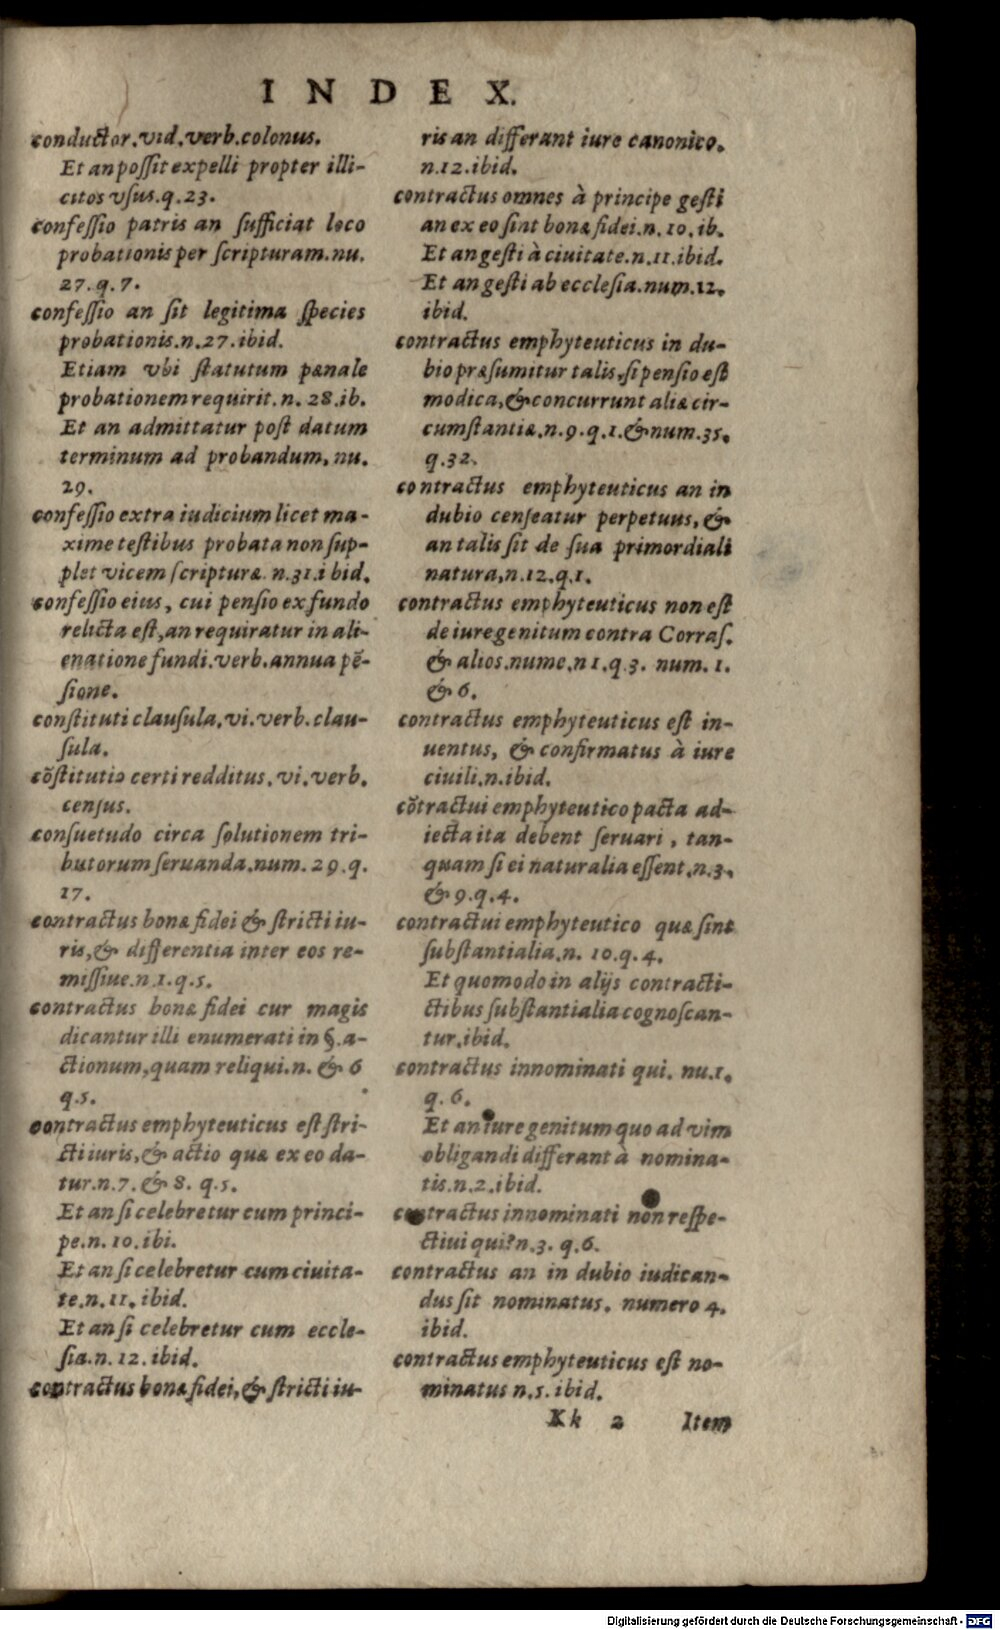 INDEX.
conductor.vid.verb.colonus.
Et an poſſit expelli propter illi-
citos vſus.q.23.
confeſſio patris an ſufficiat loco
probationis per ſcripturam.nu.
27.q.7.
confeſſio an ſit legitima ſpecies
probationis.n.27.ibid.
Etiam vbi ſtatutum pænale
probationem requirit.n.28.ib.
Et an admittatur poſt datum
terminum ad probandum, nu.
29.
confeſſio extra iudicium licet ma-
xime teſtibus probata non ſup-
plet vicem ſcripturæ. n.31.i bid.
confeſſio eius, cui penſio ex fundo
relicta eſt, an requiratur in ali-
enatione fundi.verb.annua pẽ-
ſione.
conſtituti clauſula.vi.verb.clau-
ſula.
cõſtitutio certi redditus.vi.verb.
cenſus.
conſuetudo circa ſolutionem tri-
butorum ſeruanda.num.29.q.
17.
contractus bonæ fidei & ſtricti iu-
ris, & differentia inter eos re-
miſſiue.n.1.q.5.
contractus bonæ fidei cur magis
dicantur illi enumerati in §.a-
ctionum, quam reliqui.n. & 6
q.5.
contractus emphyteuticus eſt ſtri-
cti iuris, & actio quæ ex eo da-
tur.n.7. & 8. q.5.
Et an ſi celebretur cum princi-
pe.n.10.ibi.
Et an ſi celebretur cum ciuita-
te.n.11.ibid.
Et an ſi celebretur cum eccle-
ſia.n.12.ibid.
contractus bonæ fidei, & ſtricti iu-
ris an differant iure canonico.
n.12.ibid.
contractus omnes à principe geſti
an ex eo ſint bonæ fidei.n.10.ib.
Et an geſti à ciuitate.n.11.ibid.
Et an geſti ab eccleſia.num.12.
ibid.
contractus emphyteuticus in du-
bio præſumitur talis, ſi penſio eſt
modica, & concurrunt aliæ cir-
cumſtantiæ.n.9.q.1. & num.35.
q.32.
contractus emphyteuticus an in
dubio cenſeatur perpetuus, &
an talis ſit de ſua primordiali
natura, n.12.q.1.
contractus emphyteuticus non eſt
de iure genitum contra Corraſ.
& alios.nume.n 1.q.3. num. 1.
& 6.
contractus emphyteuticus eſt in-
uentus, & confirmatus à iure
ciuili.n.ibid.
cõtractui emphyteutico pacta ad-
iecta ita debent ſeruari, tan-
quam ſi ei naturalia eſſent.n.3.
& 9.q.4.
contractui emphyteutico quæ ſint
ſubſtantialia.n. 10.q.4.
Et quomodo in alijs contracti-
ctibus ſubſtantialia cognoſcan-
tur.ibid.
contractus innominati qui. nu.1.
q.6.
Et an iure genitum quo ad vim
obligandi differant à nomina-
tis.n.2.ibid.
contractus innominati non reſpe-
ctiui qui?n.3. q.6.
contractus an in dubio iudican-
dus ſit nominatus. numero 4.
ibid.
contractus emphyteuticus eſt no-
minatus n.5. ibid.
Kk 2 Item
Digitalisierung gefördert durch die Deutsche Forschungsgemeinschaft - DFG